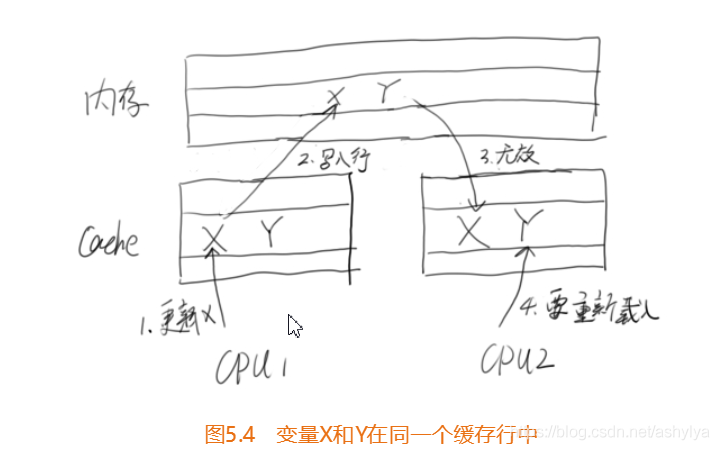 内存
X Y
2.写入行
3.无效
Cache
X Y
X Y
1.更新X
4.要重新载入
CPU1
CPU2
图5.4 变量X和Y在同一个缓存行中
https://blog.csdn.net/ashylya